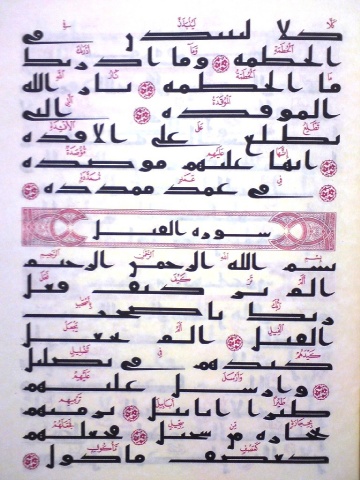 كلا لينبذن في
الحطمه وما ادريك
ما الحطمه نار الله
الموقده التي
تطلع على الافده
انها عليهم موصده
في عمد ممدده
سوره الفيل
بسم الله الرحمن الرحيم
الم تر كيف فعل
ربك باصحب
الفيل الم يجعل
كيدهم في تضليل
وارسل عليهم
طيرا ابابيل ترميهم
بحجاره من سجيل فجعلهم
كعصف ماكول